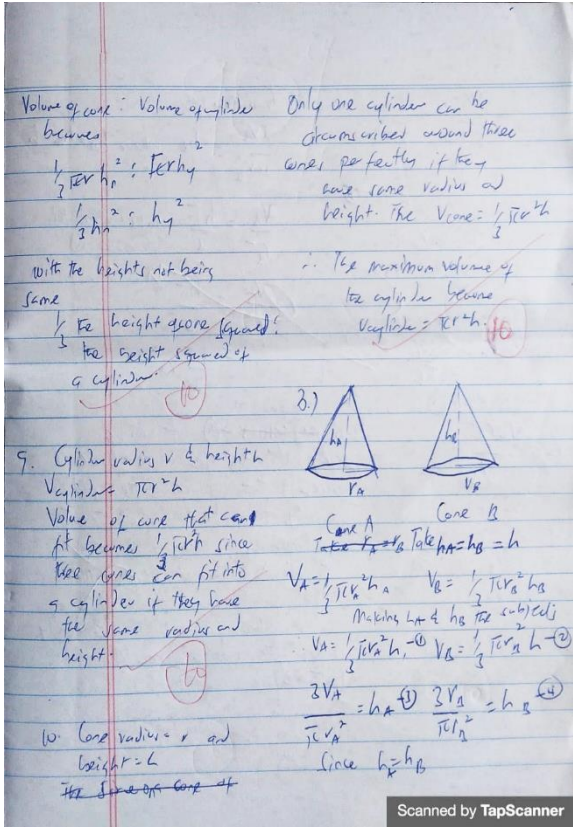 Volume of cone : Volume of cylinder
becomes
1/3 πr hₙ² : πr hy²
1/3 hₙ² : hy²
with the heights not being
same
1/3 the height of cone squared :
the height squared of
a cylinder.
10
9. Cylinder radius r & height h
Vcylinder = πr²h
Volume of cone that can
fit becomes 1/3 πr²h since
three cones can fit into
a cylinder if they have
the same radius and
height.
10
10. Cone radius = r and
height = h
Only one cylinder can be
circumscribed around three
cones perfectly if they
have same radius and
height. The Vcone = 1/3 πr²h
∴ The maximum volume of
the cylinder become
Vcylinder = πr²h.
10
3.)
hA
rA
Cone A
Cone B
Take hA = hB = h
VA = 1/3 πrA² hA VB = 1/3 πrB² hB
Making hA & hB the subjects
VA = 1/3 πrA² h, -① VB = 1/3 πrB² h -②
3VA/πrA² = hA -③ 3VB/πrB² = hB -④
Since hA = hB
Scanned by TapScanner